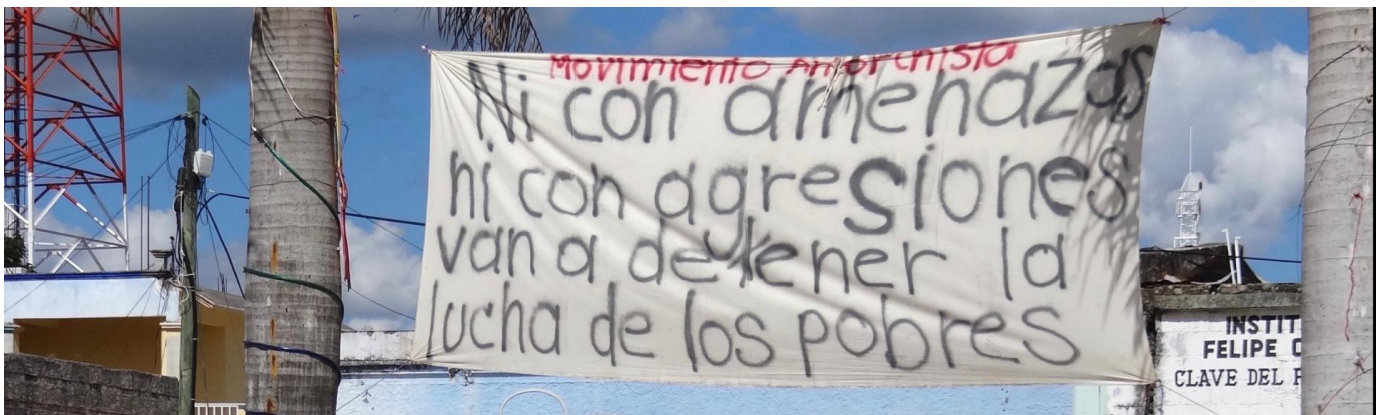 Movimiento Anorchista
Ni con amenazas
ni con agresiones
van a detener la
lucha de los pobres
INSTIT
FELIPE C
CLAVE DEL P